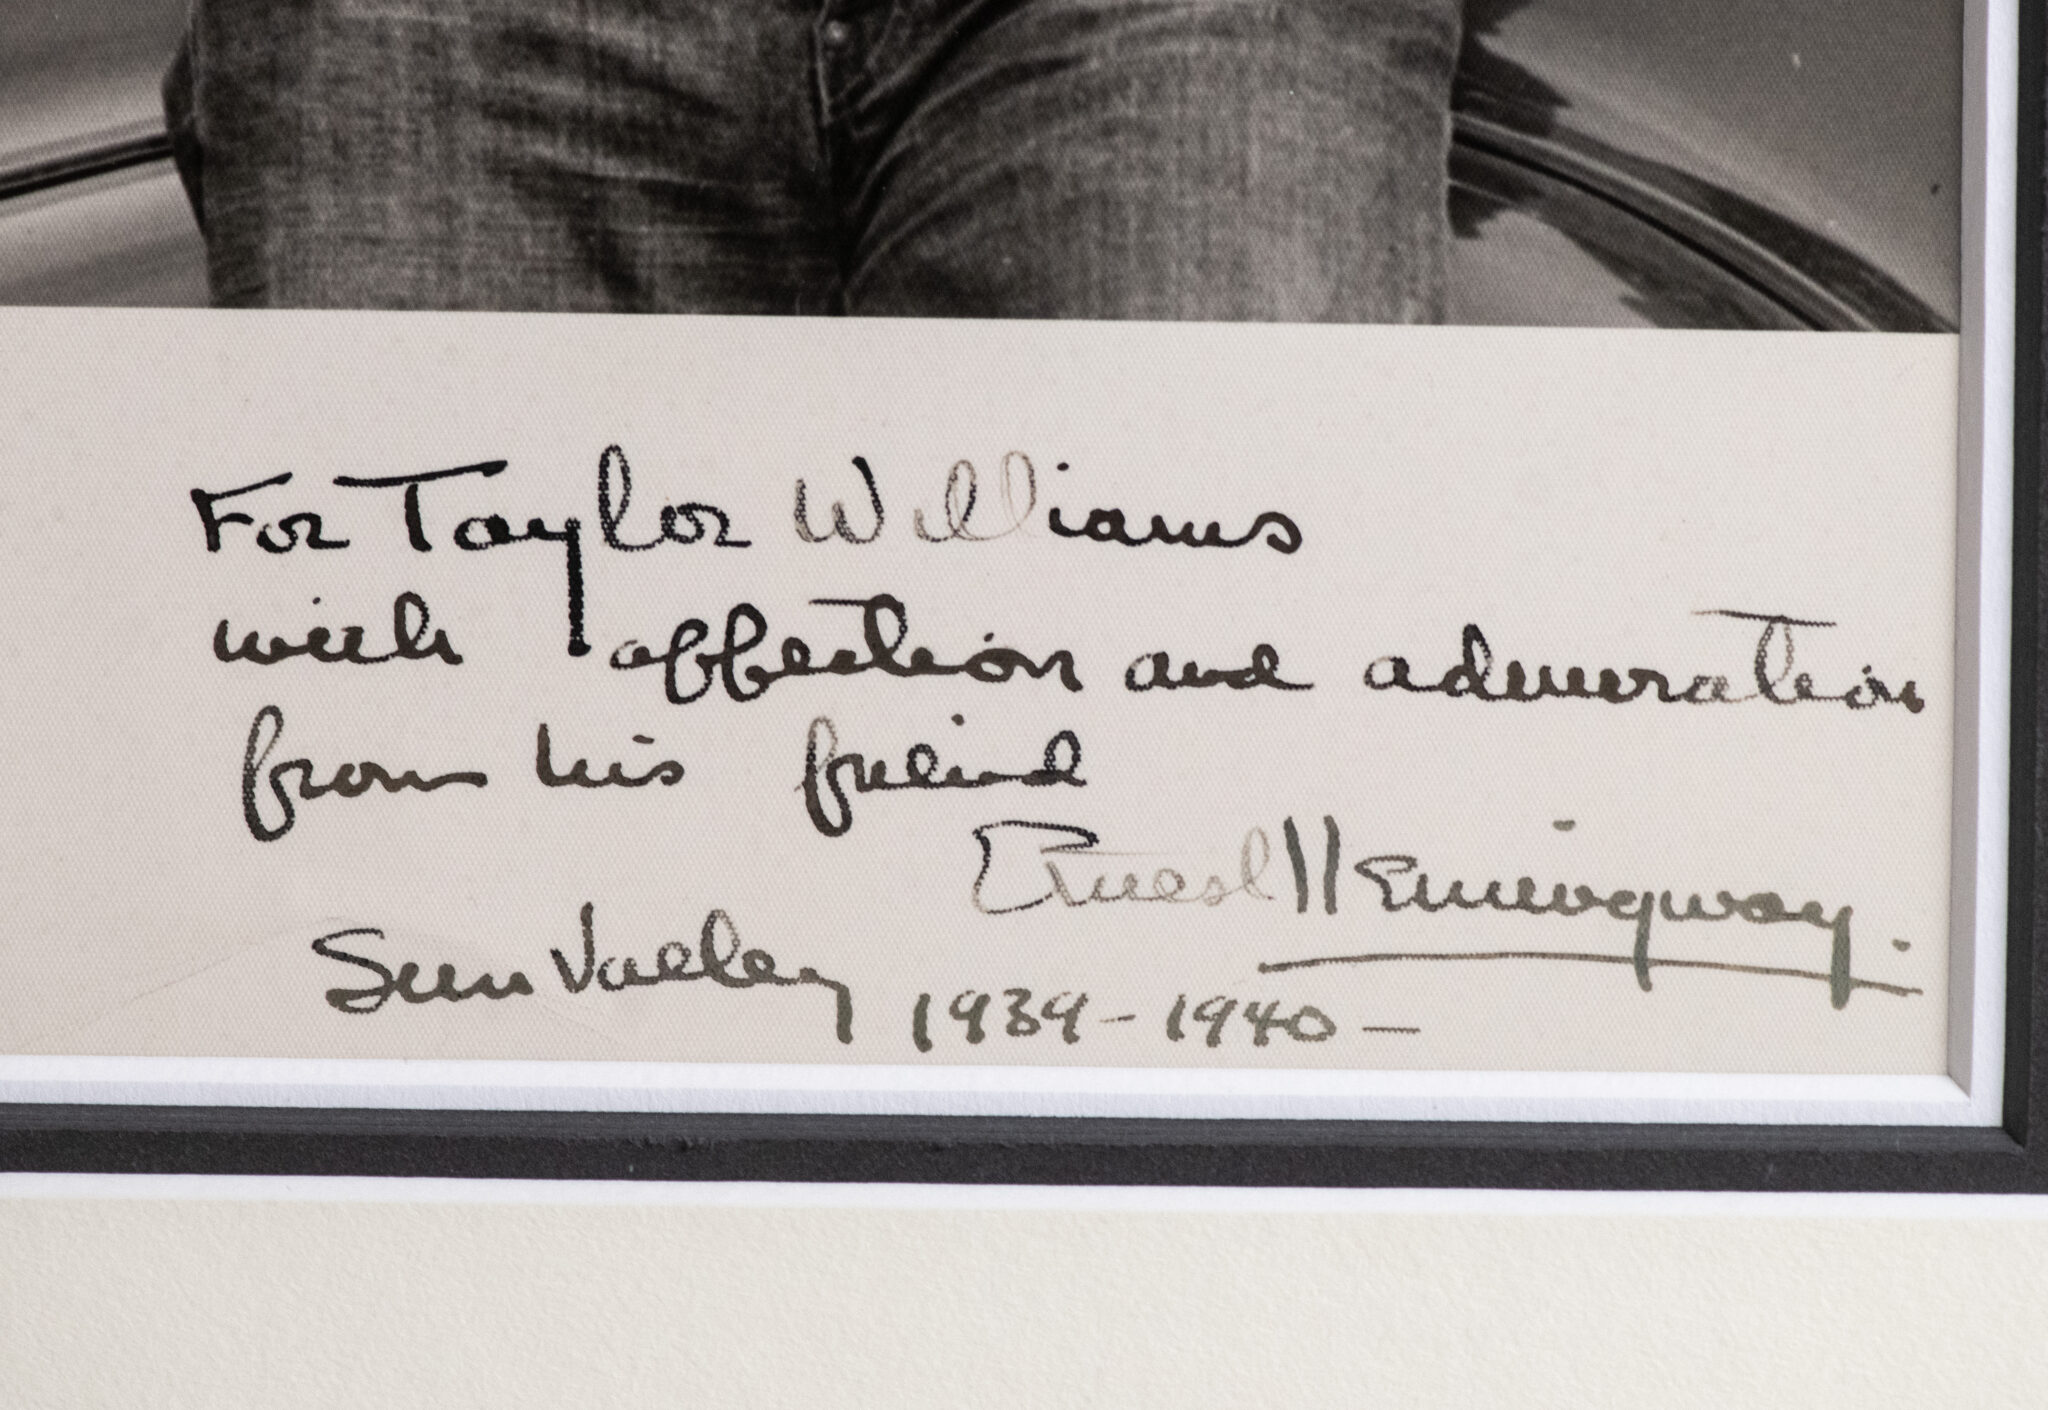 For Taylor Williams
with affection and admiration
from his friend
Ernest Hemingway.
Sun Valley 1939-1940-